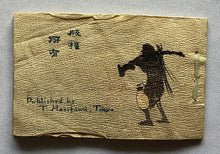 版權
所有
Published by
T. Hasegawa, Tokyo